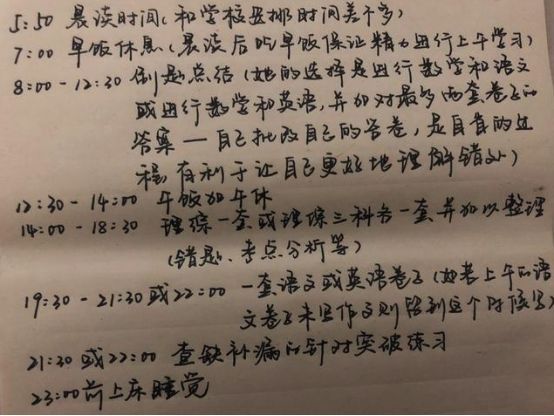 5:50 晨读时间(和学校安排时间差不多)
7:00 早饭休息(晨读后吃早饭保证精力进行上午学习)
8:00-12:30 刷题总结(她的选择是进行数学和语文
或进行数学和英语,并加对最多两套卷子的
答案一自己批改自己的答卷,是自省的过
程,有利于让自己更好地理解错处)
12:30-14:00 午饭加午休
14:00-18:30 理综一套或理综三科各一套并加以整理
(错题、考点分析等)
19:30-21:30或22:00 一套语文或英语卷子(如果上午的语
文卷子未写作文则留到这个时候写)
21:30或22:00 查缺补漏的针对突破练习
23:00前上床睡觉